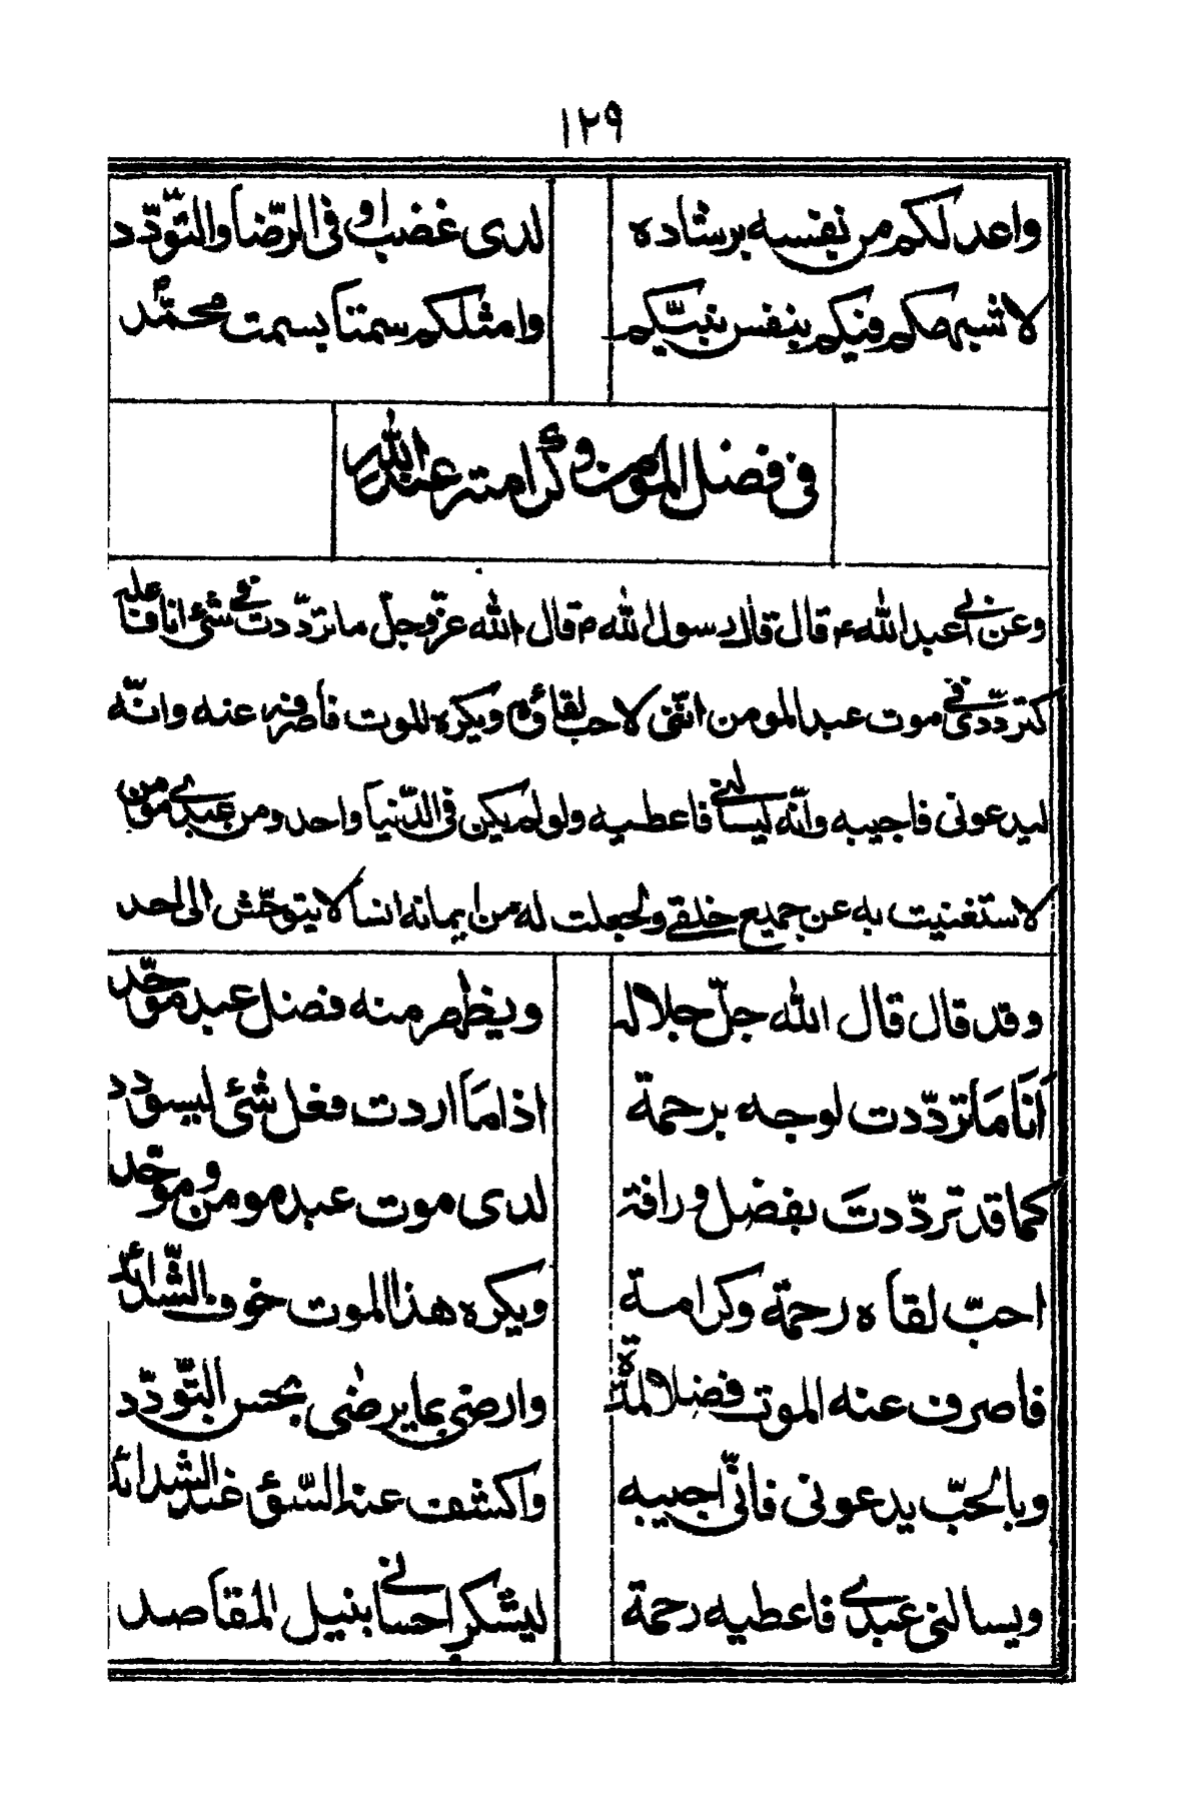 ١٢٩
واعدلكم من نفسه برشاده لدى غضب او فى الرّضا والتّودّد
لاشبهكم فيكم بنفس نبيّكم وامثلكم سمتا بسمت محمّد
فى فضل المومن وكرامته عند الله
وعن ابى عبد الله ع قال قال رسول الله ص قال الله عزّ وجلّ ما تردّدت فى شئ انا فاعله
كتردّدى فى موت عبد المومن انّنى لاحب لقاؤه ويكره الموت فأصرفه عنه وانّه
ليدعونى فاجيبه وانّه ليسالنى فاعطيه ولو لم يكن فى الدّنيا واحد ومن عبيدى مؤمن
لاستغنيت به عن جميع خلقى ولجعلت له من ايمانه انسا لا يتوحّش الى احد
وقد قال قال الله جلّ جلاله ويظهر منه فضل عبد موحّد
أنا ما تردّدت لوجه برحمة اذا ما اردت فعل شئ ليسودد
كما قد تردّدت بفضل ورافة لدى موت عبد مومن وموحّد
احبّ لقاه رحمة وكرامة ويكره هذا الموت خوف الشّدائد
فأصرف عنه الموت فضلا لمدّة وارضى بما يرضى بحسن التّودّد
وبالحبّ يدعونى فانّى اجيبه واكشف عنه السّوء عند الشدائد
ويسالنى عبدى فاعطيه رحمة ليشكر احسانى بنيل المقاصد